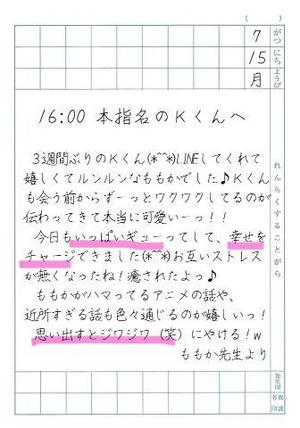 ( )
7
がつ
15
にち
月
ようび
れんらくすることがら
16:00 本指名のKくんへ
3週間ぶりのKくん(*^^*)LINEしてくれて
嬉しくてルンルンなももかでした♪Kくん
も会う前からずーっとワクワクしてるのが
伝わってきて本当に可愛いーっ!!
今日もいっぱいギューってして、幸せを
チャージできました(*^^*)お互いストレス
が無くなったね!癒されたよっ♪
ももかがハマってるアニメの話や、
近所すぎる話も色々通じるのが嬉しいっ!
思い出すとジワジワ(笑)にやける!w
ももか先生より